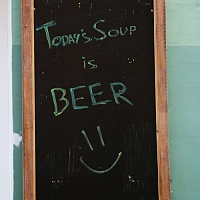 TODAY'S SOUP
is
BEER